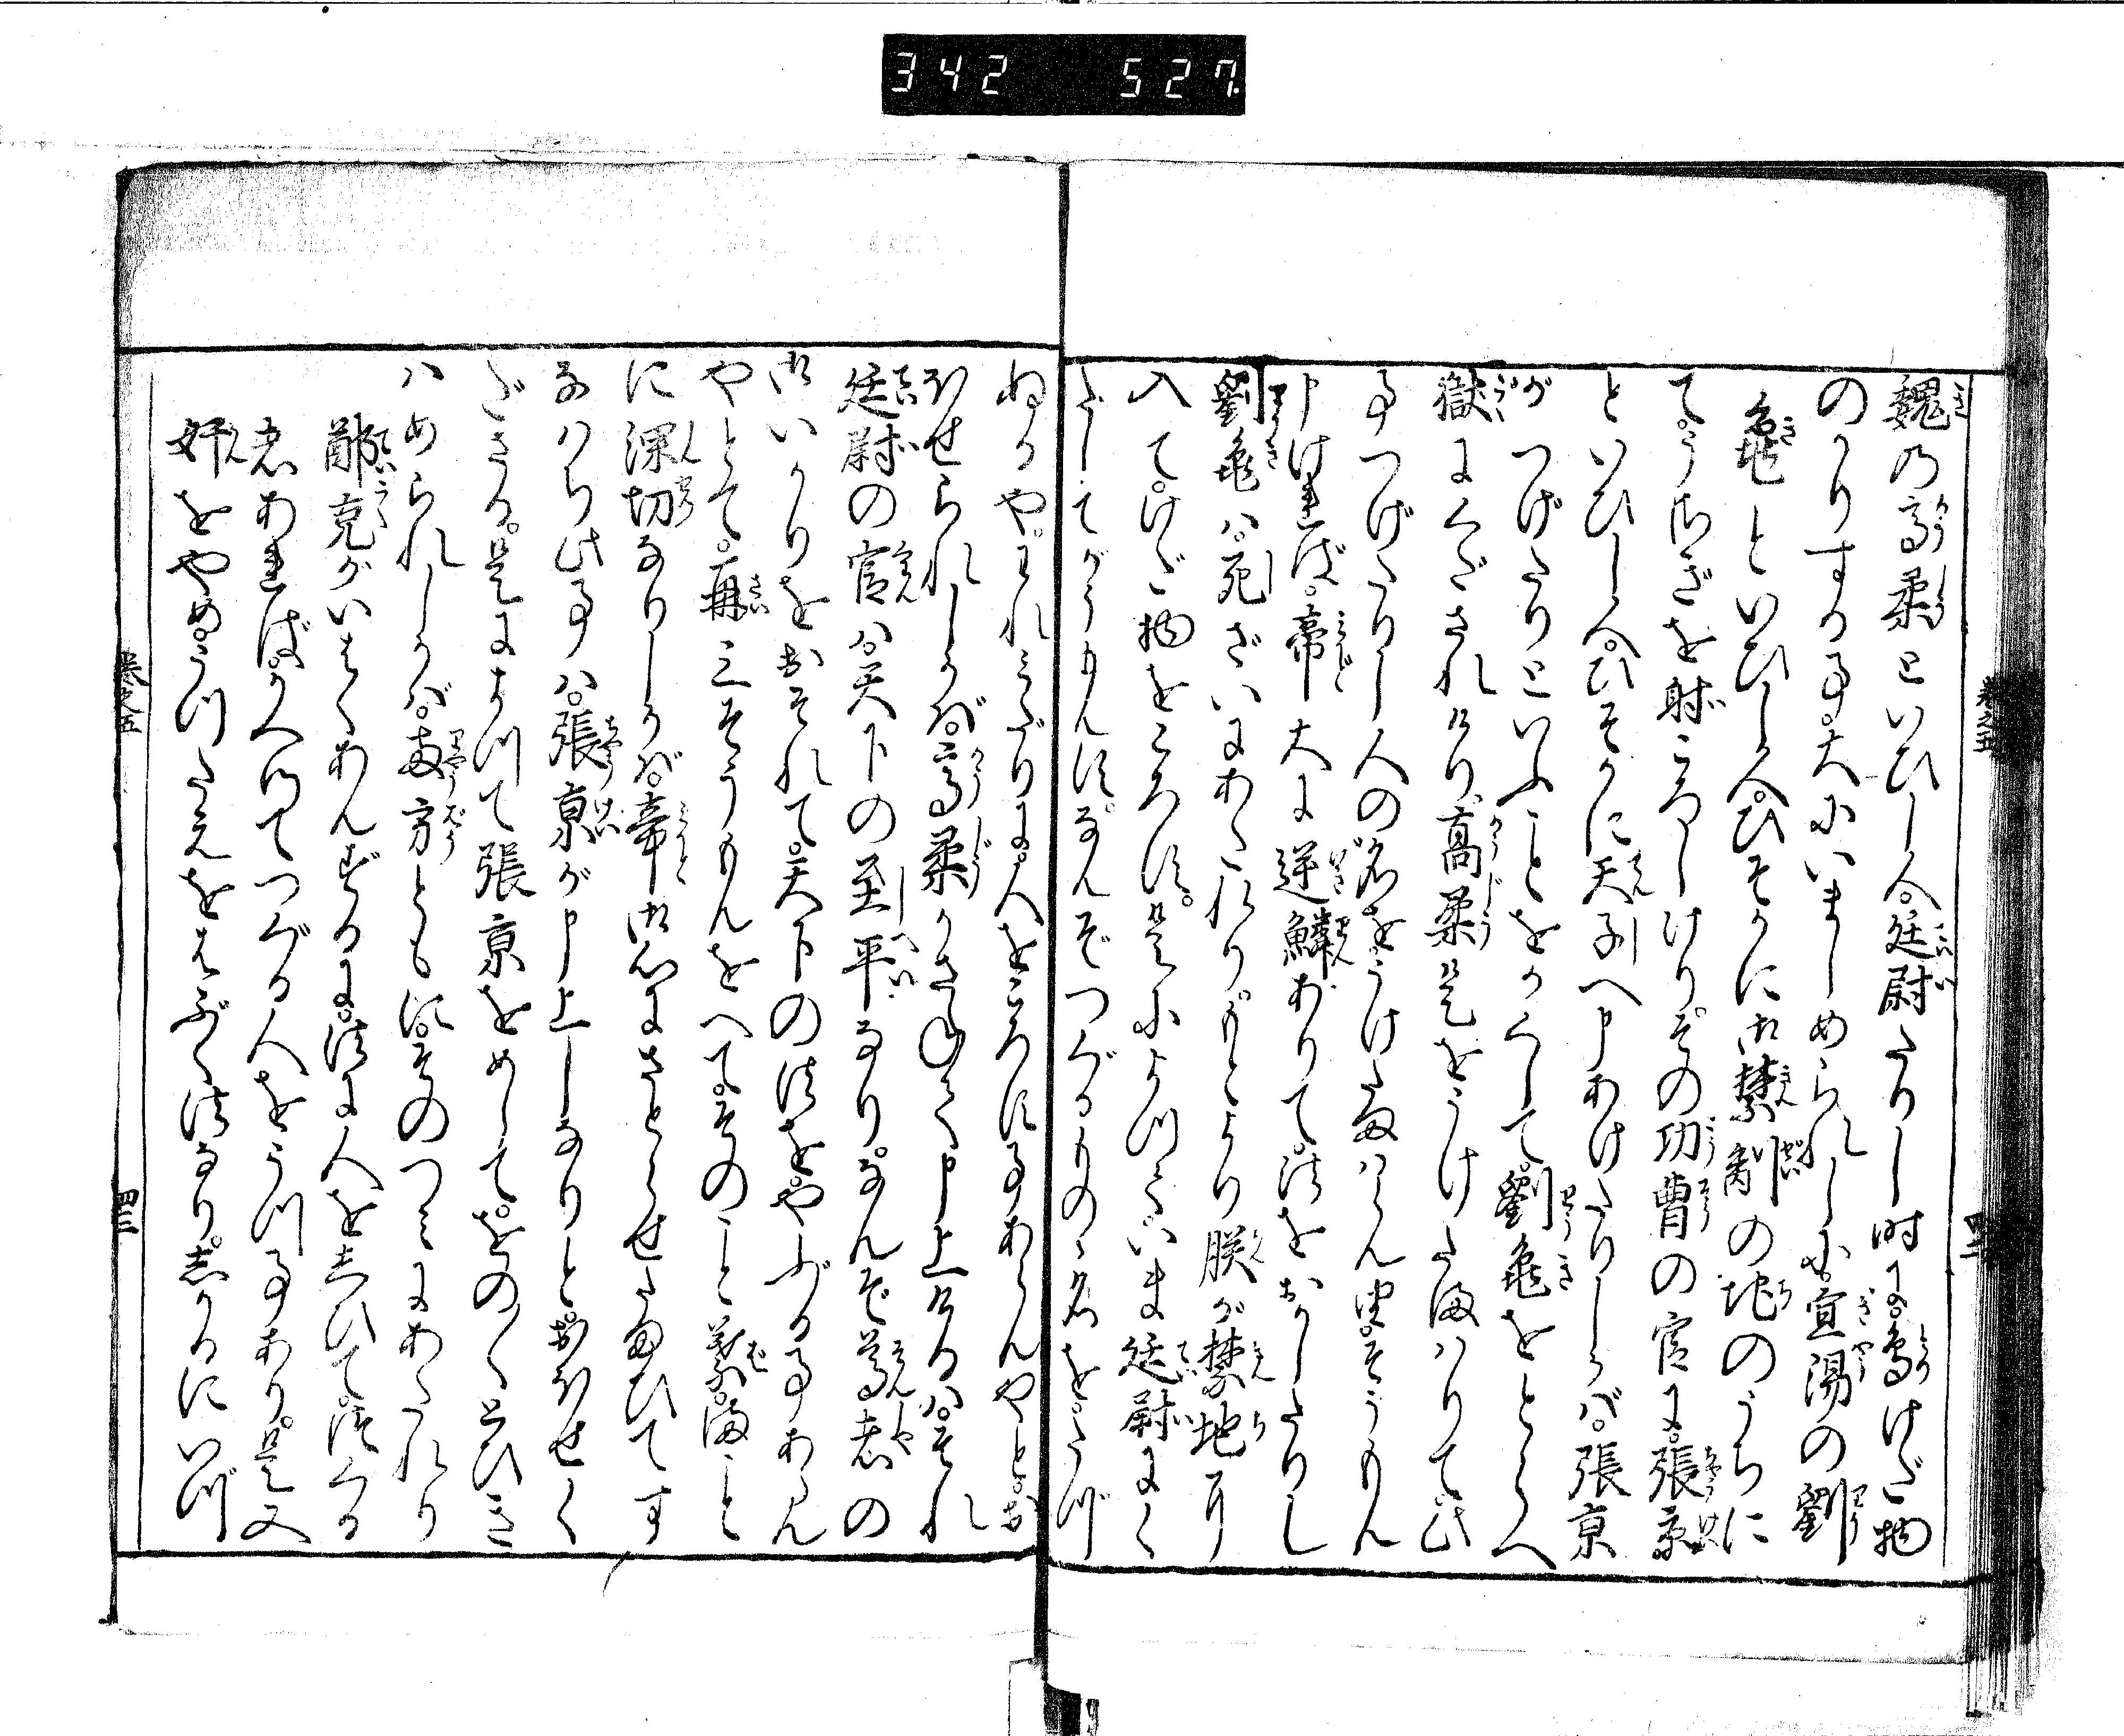 342 527
魏の高柔といひし人。廷尉たりし時に。鳥けだ物
のかりする事。大にいましめられしに。宜陽の劉
亀といひし人。ひそかに御禁制の地のうちに
て。うさぎを射ころしけり。その功曹の官に。張京
といひし人。ひそかに天子へ申あけたりしかば。張京
がつげたりといふことをかくして。劉亀をとらへ
獄にくだされけり。高柔是をうけたまはりて。此
事つげたりし人の名を。うけたまはらんと。そうもん
申ければ。帝大に逆鱗ありて。法をおかしたりし
劉亀は。死ざいにあたれり。もとより朕が禁地に
入て。けだ物をころす。是によつて。いま廷尉にく
だしてがうもんす。なんぞつぐるものゝ名を。たづ
ぬるや。われみだりに。人をころす事あらんやと。お
ほせられしかば。高柔かさねて申上けるは。それ
廷尉の官は。天下の至平なり。なんぞ尊者の
御いかりをおそれて。天下の法を。やぶる事あらん
やとて。再三そうもんをへて。そのこと義。まこと
に深切なりしかば。帝御心にさとらせたまひて。す
なはち此事は。張京が申上しなりと。おほせく
ださる。是によつて張京をめして。をの〱とひき
はめられしかば。両方ともに。そのつみにあたれり
鄭克がいはく。あんずるに。法に人をしひて。つくる
者あれば。かへつてつぐる人をうつ事あり。是又
奸をやめ。うつたえをはぶく法なり。しかるにいづ
巻之五
四二
巻之五
四三